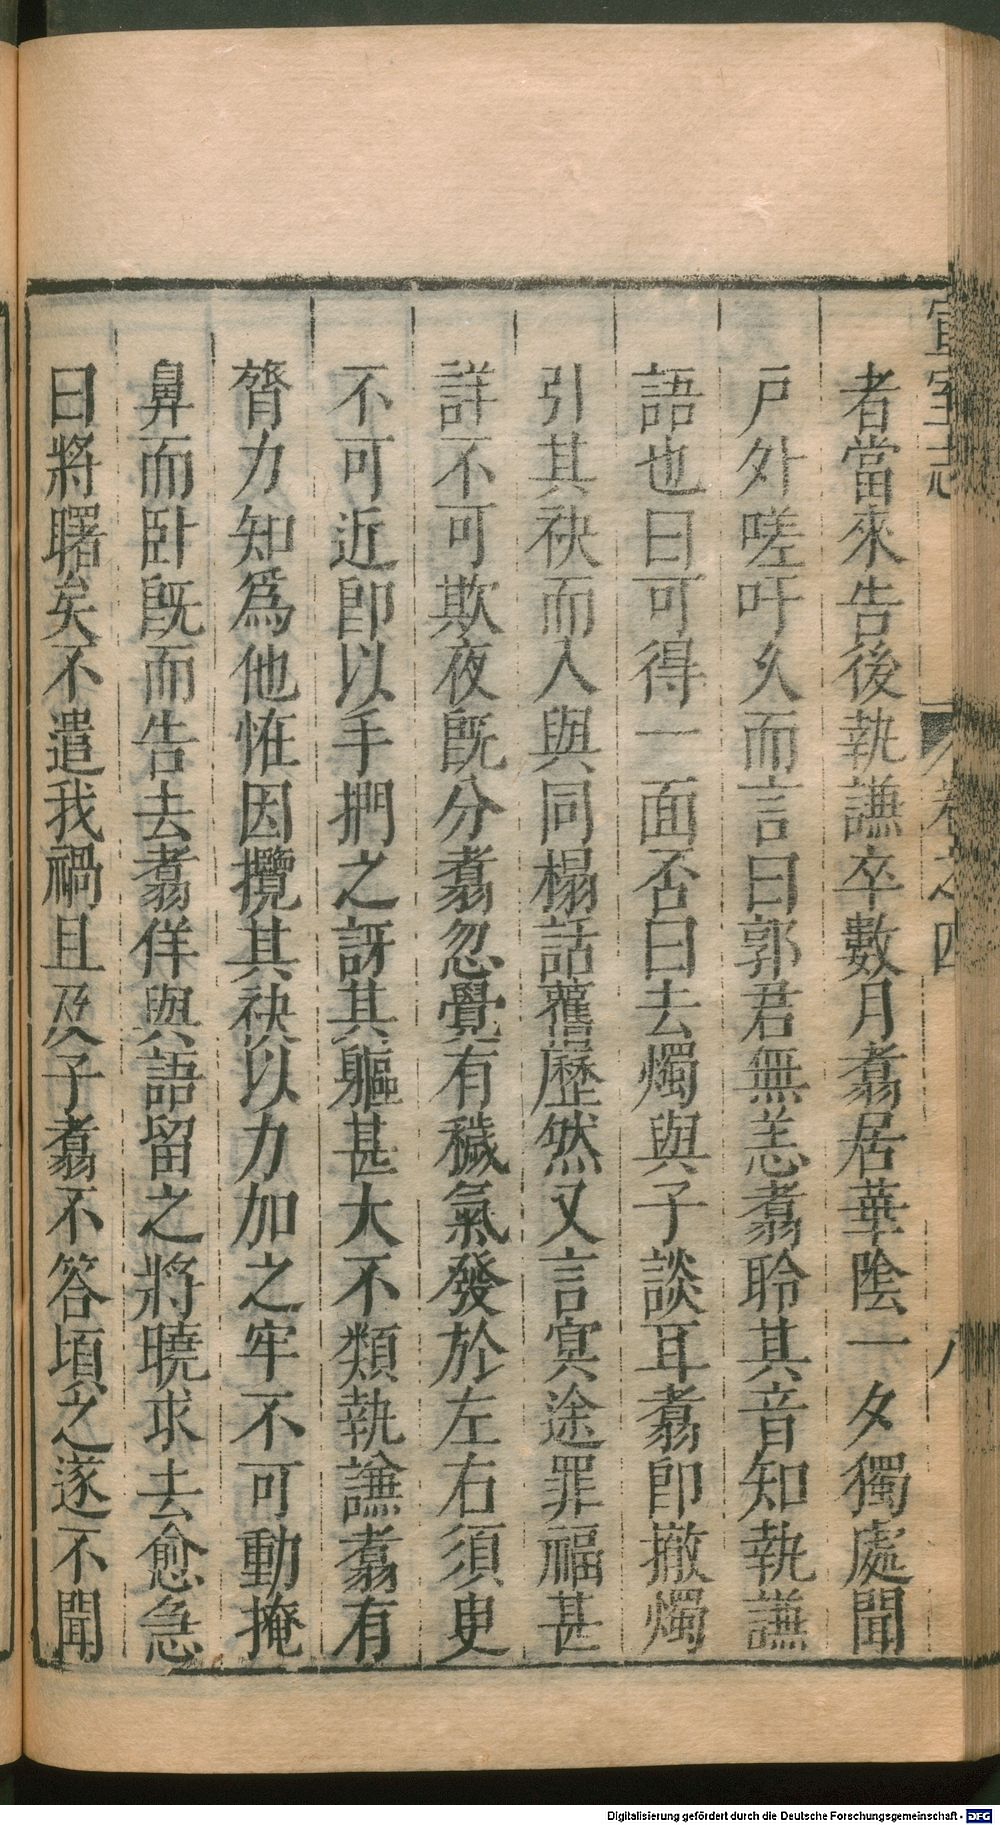 宣室志 卷之四 八
者當來告後執謙卒數月翥居華陰一夕獨處聞
戶外嗟吁久而言曰郭君無恙翥聆其音知執謙
語也曰可得一面否曰去燭與子談耳翥即撤燭
引其袂而入與同榻話舊歷然又言冥途罪福甚
詳不可欺夜既分翥忽覺有穢氣發於左右須臾
不可近即以手捫之訝其軀甚大不類執謙翥有
膂力知為他恠因攬其袂以力加之牢不可動掩
鼻而臥既而告去翥佯與語留之將曉求去愈急
曰將曙矣不遣我禍且及子翥不答頃之遂不聞
Digitalisierung gefördert durch die Deutsche Forschungsgemeinschaft - DFG